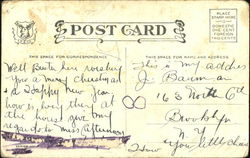 POST CARD
PLACE
STAMP HERE
DOMESTIC
ONE CENT
FOREIGN
TWO CENTS
THIS SPACE FOR CORRESPONDENCE
THIS SPACE FOR NAME AND ADDRESS
Well here wishing
you a merry christmas
& a Happy New Year
how is every they at
the house give my
regards to miss
This is my address
J. Bauman
163 North 6th
Brooklyn
N.Y.